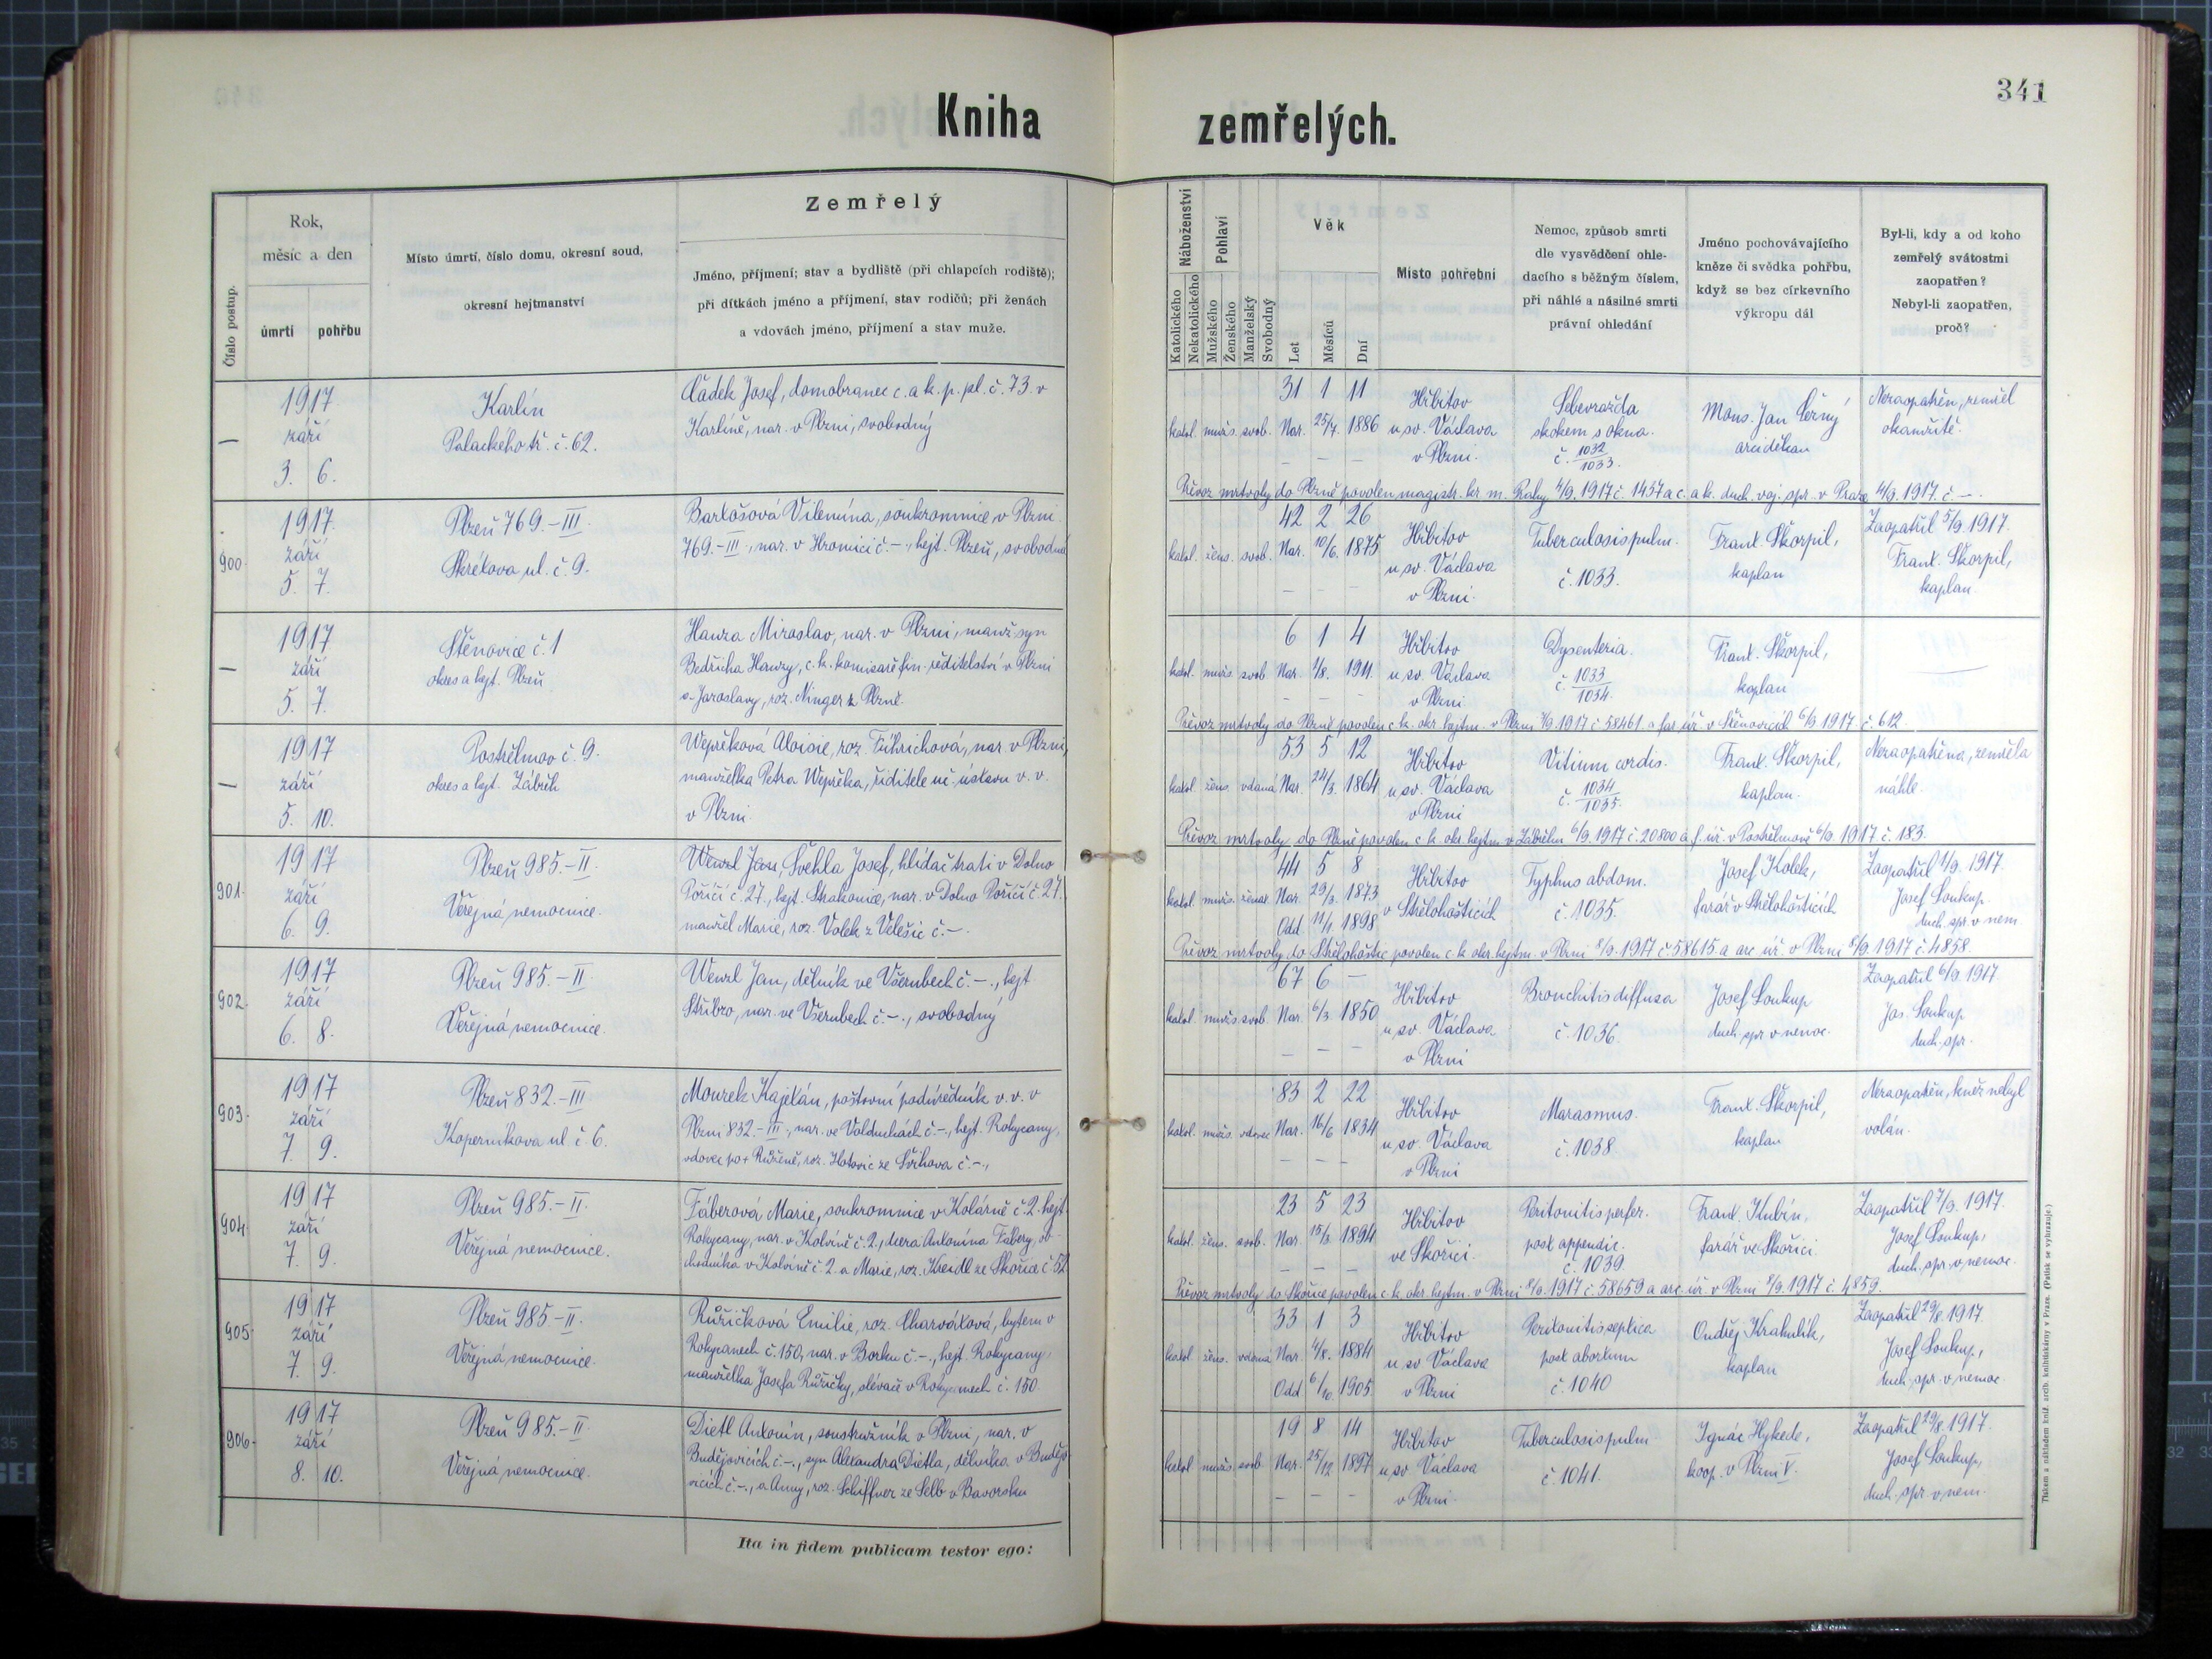 341
Kniha zemřelých.
Číslo postup.
Rok,
měsíc a den
úmrtí
pohřbu
Místo úmrtí, číslo domu, okresní soud,
okresní hejtmanství
Zemřelý
Jméno, příjmení; stav a bydliště (při chlapcích rodiště);
při dítkách jméno a příjmení, stav rodičů; při ženách
a vdovách jméno, příjmení a stav muže.
Náboženství
Katolického
Nekatolického
Pohlaví
Mužského
Ženského
Manželský
Svobodný
Věk
Let
Měsíců
Dní
Místo pohřební
Nemoc, způsob smrti
dle vysvědčení ohle-
dacího s běžným číslem,
při náhlé a násilné smrti
právní ohledání
Jméno pochovávajícího
kněze či svědka pohřbu,
když se bez církevního
výkropu dál
Byl-li, kdy a od koho
zemřelý svátostmi
zaopatřen?
Nebyl-li zaopatřen,
proč?
—
1917
září
3. 6.
Karlín
Palackého tř. č. 62.
Čádek Josef, domobranec c. a k. p. pl. č. 73. v
Karlíně, nar. v Plzni, svobodný
katol. mužs. svob.
31 1 11
Nar. 25/7. 1886
— — —
Hřbitov
u sv. Václava
v Plzni.
Sebevražda
skokem s okna.
č. 1032/1033.
Mons. Jan Černý
arciděkan
Nezaopatřen, zemřel
okamžitě.
Převoz mrtvoly do Plzně povolen magistr. kr. m. Prahy 4/9. 1917 č. 1457 a c. a k. duch. voj. spr. v Praze 4/9. 1917. č. —.
900.
1917.
září
5. 7.
Plzeň 769.–III.
Škrétova ul. č. 9.
Bartošová Vilemína, soukromnice v Plzni
769.–III., nar. v Hromici č. –., hejt. Plzeň, svobodná
katol. žens. svob.
42 2 26
Nar. 10/6. 1875
— — —
Hřbitov
u sv. Václava
v Plzni.
Tuberculosis pulm.
č. 1033.
Frant. Škorpil,
kaplan
Zaopatřil 5/9. 1917.
Frant. Škorpil,
kaplan.
—
1917
září
5. 7.
Štěnovice č. 1
okres a hejt. Plzeň
Hanza Miroslav, nar. v Plzni, manž. syn
Bedřicha Hanzy, c. k. komisaře fin. ředitelství v Plzni
a Jaroslavy, roz. Ninger z Plzně.
katol. mužs. svob.
6 1 4
Nar. 1/8. 1911.
— — —
Hřbitov
u sv. Václava
v Plzni.
Dysenteria.
č. 1033/1034.
Frant. Škorpil,
kaplan
Převoz mrtvoly do Plzně povolen c. k. okr. hejtm. v Plzni 1917 č. 58461. a far. úř. v Štěnovicích 6/9. 1917. č. 612.
—
1917
září
5. 10.
Postřelmov č. 9.
okres a hejt. Zábřeh
Wepřeková Aloisie, roz. Führichová, nar. v Plzni,
manželka Petra Wepřeka, řiditele uč. ústavu v. v.
v Plzni.
katol. žens. vdaná
53 5 12
Nar. 24/3. 1864
Hřbitov
u sv. Václava
v Plzni
Vitium cordis.
č. 1034/1035.
Frant. Škorpil,
kaplan.
Nezaopatřena, zemřela
náhle.
Převoz mrtvoly do Plzně povolen c. k. okr. hejtm. v Zábřehu 6/9. 1917 č. 20800 a f. úř. v Postřelmově 6/9. 1917 č. 183.
901.
1917
září
6. 9.
Plzeň 985.–II.
Veřejná nemocnice.
Wenzl Jan, Švehla Josef, hlídač trati v Dolno
Poříčí č. 27., hejt. Strakonice, nar. v Dolno Poříčí č. 27.
manžel Marie, roz. Volek z Velešic č. –.
katol. mužs. ženat.
44 5 8
Nar. 29/3. 1873
Odd. 11/1. 1898
Hřbitov
v Střelohošticích
Typhus abdom.
č. 1035.
Josef Kolek,
farář v Střelohošticích
Zaopatřil 1/9. 1917.
Josef Soukup.
duch. spr. v nem.
Převoz mrtvoly do Střelohoštic povolen c. k. okr. hejtm. v Plzni 8/9. 1917 č. 58615 a arc. úř. v Plzni 8/9. 1917 č. 4858.
902.
1917
září
6. 8.
Plzeň 985.–II.
Veřejná nemocnice.
Wenzl Jan, dělník ve Všerubech č. –., hejt
Stříbro, nar. ve Všerubech č. –., svobodný
katol. mužs. svob.
67 6 —
Nar. 6/3. 1850
— — —
Hřbitov
u sv. Václava
v Plzni
Bronchitis diffusa
č. 1036.
Josef Soukup
duch. spr. v nemoc.
Zaopatřil 6/9. 1917.
Jos. Soukup
duch. spr.
903.
1917
září
7. 9.
Plzeň 832.–III.
Koperníkova ul. č. 6.
Mourek Kajetán, poštovní podúředník v. v. v
Plzni 832.–III., nar. ve Volduchách č. –., hejt. Rokycany,
vdovec po + Růženě, roz. Hotovic ze č. –.,
katol. mužs. vdovec
83 2 22
Nar. 16/6 1834
— — —
Hřbitov
u sv. Václava
v Plzni
Marasmus.
č. 1038
Frant. Škorpil,
kaplan
Nezaopatřen, kněz nebyl
volán.
904.
1917
září
7. 9.
Plzeň 985.–II.
Veřejná nemocnice.
Fáberová Marie, soukromnice v Kolárně č. 2. hejt.
Rokycany, nar. v Kolvíně č. 2., dcera Antonína Fábery, ob-
chodníka v Kolvíně č. 2. a Marie, roz. Kreidl ze Skořice č. 52
katol. žens. svob.
23 5 23
Nar. 15/3. 1894
— — —
Hřbitov
ve Skořici.
Peritonitis perfer.
post appendic.
č. 1039.
Frant. Kubín,
farář ve Skořici.
Zaopatřil 7/9. 1917.
Josef Soukup,
duch. spr. v nemoc.
Převoz mrtvoly do Skořice povolen c. k. okr. hejtm. v Plzni 8/9. 1917 č. 58659 a arc. úř. v Plzni 8/9. 1917 č. 4859.
905.
1917
září
7. 9.
Plzeň 985.–II.
Veřejná nemocnice.
Růžičková Emilie, roz. Charvátová, bytem v
Rokycanech č. 150, nar. v Borku č. –., hejt. Rokycany,
manželka Josefa Růžičky, slévače v Rokycanech č. 150.
katol. žens. vdaná
33 1 3
Nar. 4/8. 1884
Odd. 6/10. 1905.
Hřbitov
u sv. Václava
v Plzni
Peritonitis septica
post abortum
č. 1040
Ondřej Krahulík,
kaplan
Zaopatřil 29/8. 1917.
Josef Soukup,
duch. spr. v nemoc.
906.
1917
září
8. 10.
Plzeň 985.–II
Veřejná nemocnice.
Dietl Antonín, soustružník v Plzni, nar. v
Budějovicích č. –., syn Alexandra Dietla, dělníka v Budějo
vicích č. –., a Anny, roz. Schiffner ze Selb v Bavorsku
katol. mužs. svob.
19 8 14
Nar. 25/12 1897
— — —
Hřbitov
u sv. Václava
v Plzni.
Tuberculosis pulm
č. 1041.
Ignác Hykede,
koop. v Plzni V.
Zaopatřil 29/8. 1917.
Josef Soukup,
duch. spr. v nem.
Ita in fidem publicam testor ego:
Tiskem a nákladem kníž. arcib. knihtiskárny v Praze. (Patisk se vyhrazuje.)